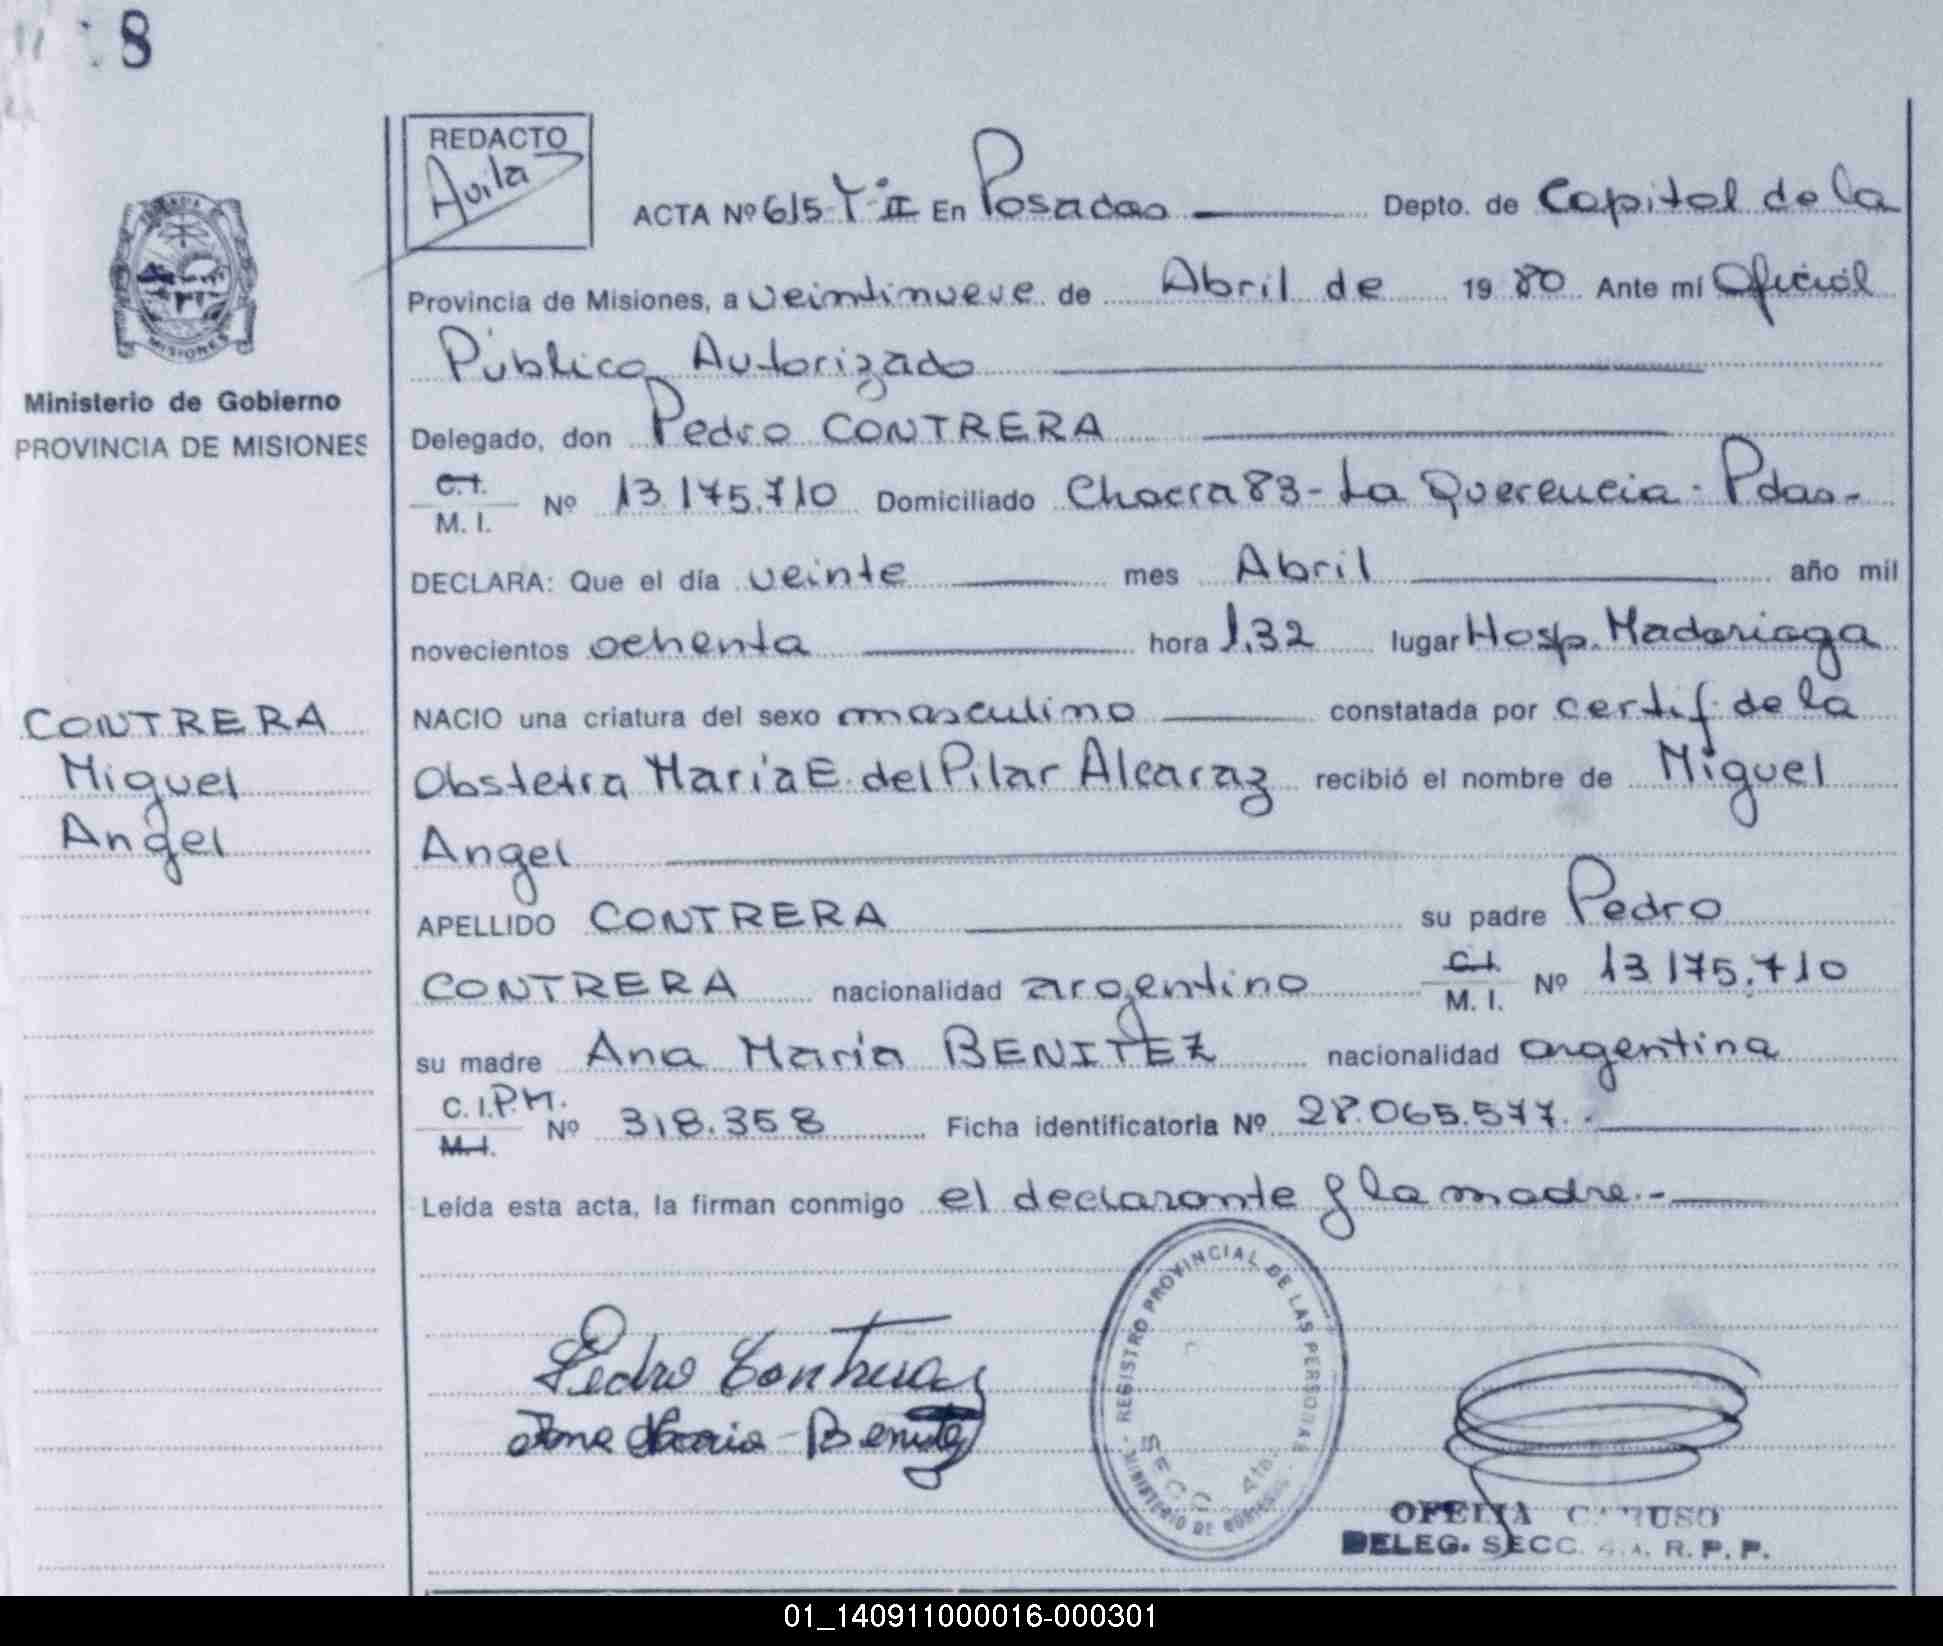 8
REDACTO
Avila
ACTA Nº 615-T-II En Posadas Depto. de Capital de la
Provincia de Misiones, a veintinueve de Abril de 1980 Ante mí Oficial
Público Autorizado
MISIONES
Ministerio de Gobierno
PROVINCIA DE MISIONES
Delegado, don Pedro CONTRERA
C.I.
M. I. Nº 13.175.710 Domiciliado Chacra 83-La Querencia-Pdas.-
DECLARA: Que el día veinte mes Abril año mil
novecientos ochenta hora 1,32 lugar Hosp. Madariaga
CONTRERA
Miguel
Angel
NACIO una criatura del sexo masculino constatada por certif. de la
Obstetra María E. del Pilar Alcaraz recibió el nombre de Miguel
Angel
APELLIDO CONTRERA su padre Pedro
CONTRERA nacionalidad argentino C.I. M. I. Nº 13.175.710
su madre Ana María BENITEZ nacionalidad argentina
C. I.P.M.
M.I. Nº 318.358 Ficha identificatoria Nº 28.065.577.-
Leída esta acta, la firman conmigo el declarante y la madre.-
Pedro Contreras
Ana Maria Benitez
REGISTRO PROVINCIAL DE LAS PERSONAS
MINISTERIO DE GOBIERNO
SECC 4ta.
OFELIA
DELEG. SECC. 4.A. R. P. P.
01_140911000016-000301